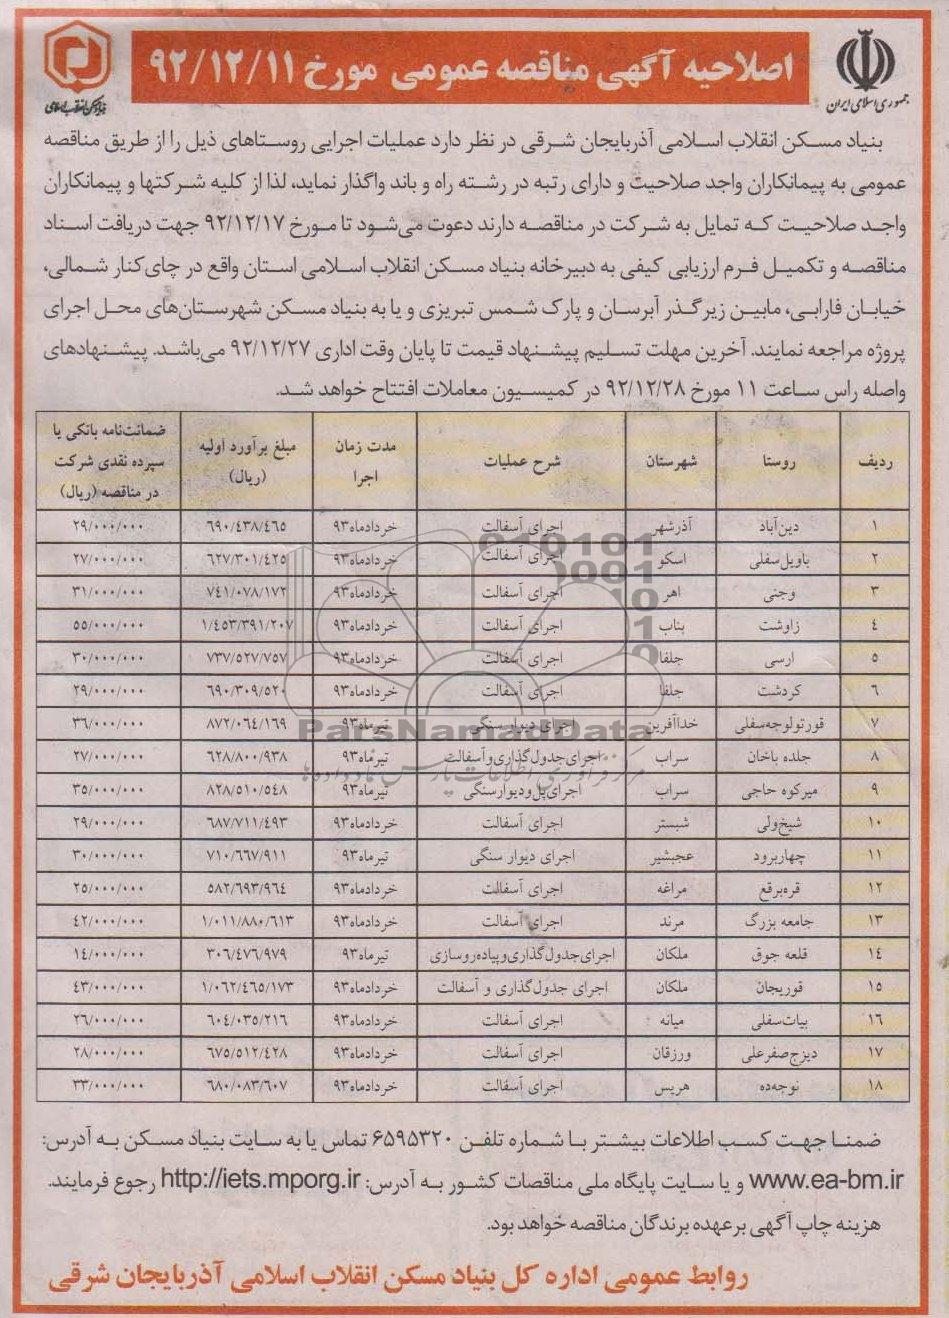 جمهوری اسلامی ایران
بنیاد مسکن انقلاب اسلامی
اصلاحیه آگهی مناقصه عمومی مورخ ۹۲/۱۲/۱۱
بنیاد مسکن انقلاب اسلامی آذربایجان شرقی در نظر دارد عملیات اجرایی روستاهای ذیل را از طریق مناقصه
عمومی به پیمانکاران واجد صلاحیت و دارای رتبه در رشته راه و باند واگذار نماید، لذا از کلیه شرکتها و پیمانکاران
واجد صلاحیت که تمایل به شرکت در مناقصه دارند دعوت می‌شود تا مورخ ۹۲/۱۲/۱۷ جهت دریافت اسناد
مناقصه و تکمیل فرم ارزیابی کیفی به دبیرخانه بنیاد مسکن انقلاب اسلامی استان واقع در چای‌کنار شمالی،
خیابان فارابی، مابین زیرگذر آبرسان و پارک شمس تبریزی و یا به بنیاد مسکن شهرستان‌های محل اجرای
پروژه مراجعه نمایند. آخرین مهلت تسلیم پیشنهاد قیمت تا پایان وقت اداری ۹۲/۱۲/۲۷ می‌باشد. پیشنهادهای
واصله راس ساعت ۱۱ مورخ ۹۲/۱۲/۲۸ در کمیسیون معاملات افتتاح خواهد شد.
ردیف روستا شهرستان شرح عملیات مدت زمان اجرا مبلغ برآورد اولیه (ریال) ضمانت‌نامه بانکی یا سپرده نقدی شرکت در مناقصه (ریال)
۱ دین‌آباد آذرشهر اجرای آسفالت خردادماه۹۳ ۶۹۰/۴۳۸/۴۶۵ ۲۹/۰۰۰/۰۰۰
۲ باویل‌سفلی اسکو اجرای آسفالت خردادماه۹۳ ۶۲۷/۳۰۱/۴۲۵ ۲۷/۰۰۰/۰۰۰
۳ وجنی اهر اجرای آسفالت خردادماه۹۳ ۷۴۱/۰۷۸/۱۷۲ ۳۱/۰۰۰/۰۰۰
۴ زاوشت بناب اجرای آسفالت خردادماه۹۳ ۱/۴۵۳/۳۹۱/۲۰۷ ۵۵/۰۰۰/۰۰۰
۵ ارسی جلفا اجرای آسفالت خردادماه۹۳ ۷۳۷/۵۲۷/۷۵۷ ۳۰/۰۰۰/۰۰۰
۶ کردشت جلفا اجرای آسفالت خردادماه۹۳ ۶۹۰/۳۰۹/۵۲۰ ۲۹/۰۰۰/۰۰۰
۷ قورتولوجه‌سفلی خداآفرین اجرای دیوارسنگی تیرماه۹۳ ۸۷۲/۰۶۴/۱۶۹ ۳۶/۰۰۰/۰۰۰
۸ جلده باخان سراب اجرای‌جدول‌گذاری‌وآسفالت تیرماه۹۳ ۶۲۸/۸۰۰/۹۳۸ ۲۷/۰۰۰/۰۰۰
۹ میرکوه حاجی سراب اجرای‌پل‌ودیوارسنگی تیرماه۹۳ ۸۲۸/۵۱۰/۵۴۸ ۳۵/۰۰۰/۰۰۰
۱۰ شیخ‌ولی شبستر اجرای آسفالت خردادماه۹۳ ۶۸۷/۷۱۱/۴۹۳ ۲۹/۰۰۰/۰۰۰
۱۱ چهاربرود عجبشیر اجرای دیوار سنگی تیرماه۹۳ ۷۱۰/۶۶۷/۹۱۱ ۳۰/۰۰۰/۰۰۰
۱۲ قره‌برقع مراغه اجرای آسفالت خردادماه۹۳ ۵۸۲/۶۹۳/۹۶۴ ۲۵/۰۰۰/۰۰۰
۱۳ جامعه بزرگ مرند اجرای آسفالت خردادماه۹۳ ۱/۰۱۱/۸۸۰/۶۱۳ ۴۲/۰۰۰/۰۰۰
۱۴ قلعه جوق ملکان اجرای‌جدول‌گذاری‌وپیاده‌روسازی تیرماه۹۳ ۳۰۶/۴۷۶/۹۷۹ ۱۴/۰۰۰/۰۰۰
۱۵ قوریجان ملکان اجرای جدول‌گذاری و آسفالت خردادماه۹۳ ۱/۰۶۲/۴۶۵/۱۷۳ ۴۳/۰۰۰/۰۰۰
۱۶ بیات‌سفلی میانه اجرای آسفالت خردادماه۹۳ ۶۰۴/۰۳۵/۲۱۶ ۲۶/۰۰۰/۰۰۰
۱۷ دیزج‌صفرعلی ورزقان اجرای آسفالت خردادماه۹۳ ۶۷۵/۵۱۲/۴۲۸ ۲۸/۰۰۰/۰۰۰
۱۸ نوجه‌ده هریس اجرای آسفالت خردادماه۹۳ ۶۸۰/۰۸۳/۶۰۷ ۳۳/۰۰۰/۰۰۰
ParsNamadData
مرکز فرآوری اطلاعات پارس نماد داده‌ها
ضمنا جهت کسب اطلاعات بیشتر با شماره تلفن ۶۵۹۵۳۲۰ تماس یا به سایت بنیاد مسکن به آدرس:
www.ea-bm.ir و یا سایت پایگاه ملی مناقصات کشور به آدرس: http://iets.mporg.ir رجوع فرمایند.
هزینه چاپ آگهی برعهده برندگان مناقصه خواهد بود.
روابط عمومی اداره کل بنیاد مسکن انقلاب اسلامی آذربایجان شرقی